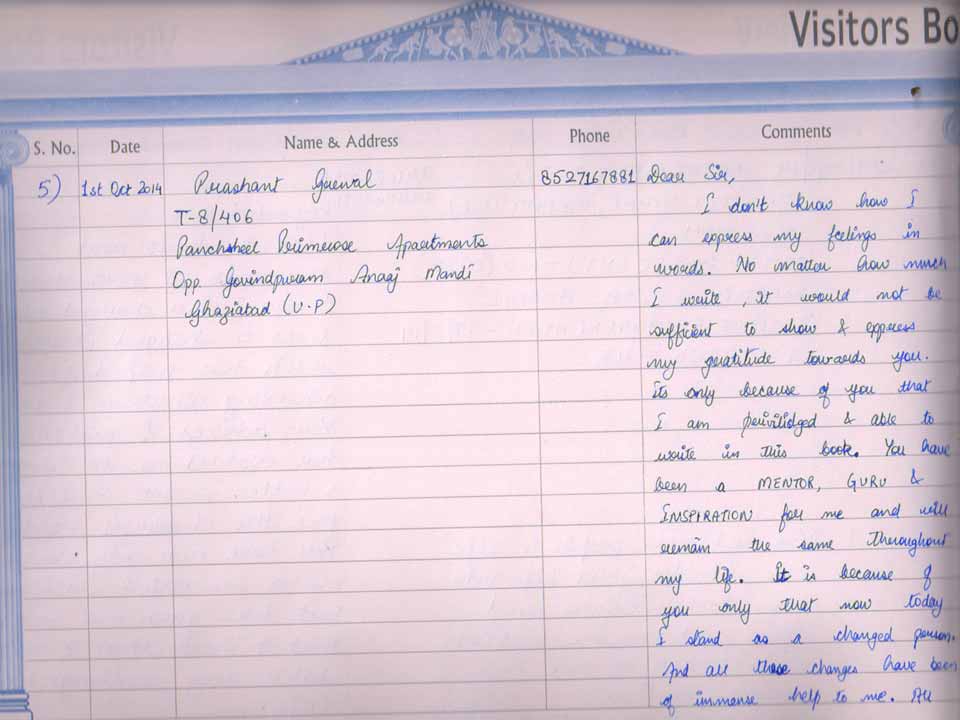 Visitors Bo
S. No.
Date
Name & Address
Phone
Comments
5)
1st Oct 2014
Prashant Grewal
T-8/406
Panchsheel Primerose Apartments
Opp. Govindpuram Anaaj Mandi
Ghaziabad (U.P)
8527167881
Dear Sir,
I don't know how I
can express my feelings in
words. No matter how much
I write, it would not be
sufficient to show & express
my gratitude towards you.
its only because of you that
I am privilidged & able to
write in this book. You have
been a MENTOR, GURU &
INSPIRATION for me and will
remain the same throughout
my life. It is because of
you only that now today
I stand as a changed person.
And all these changes have been
of immense help to me. All